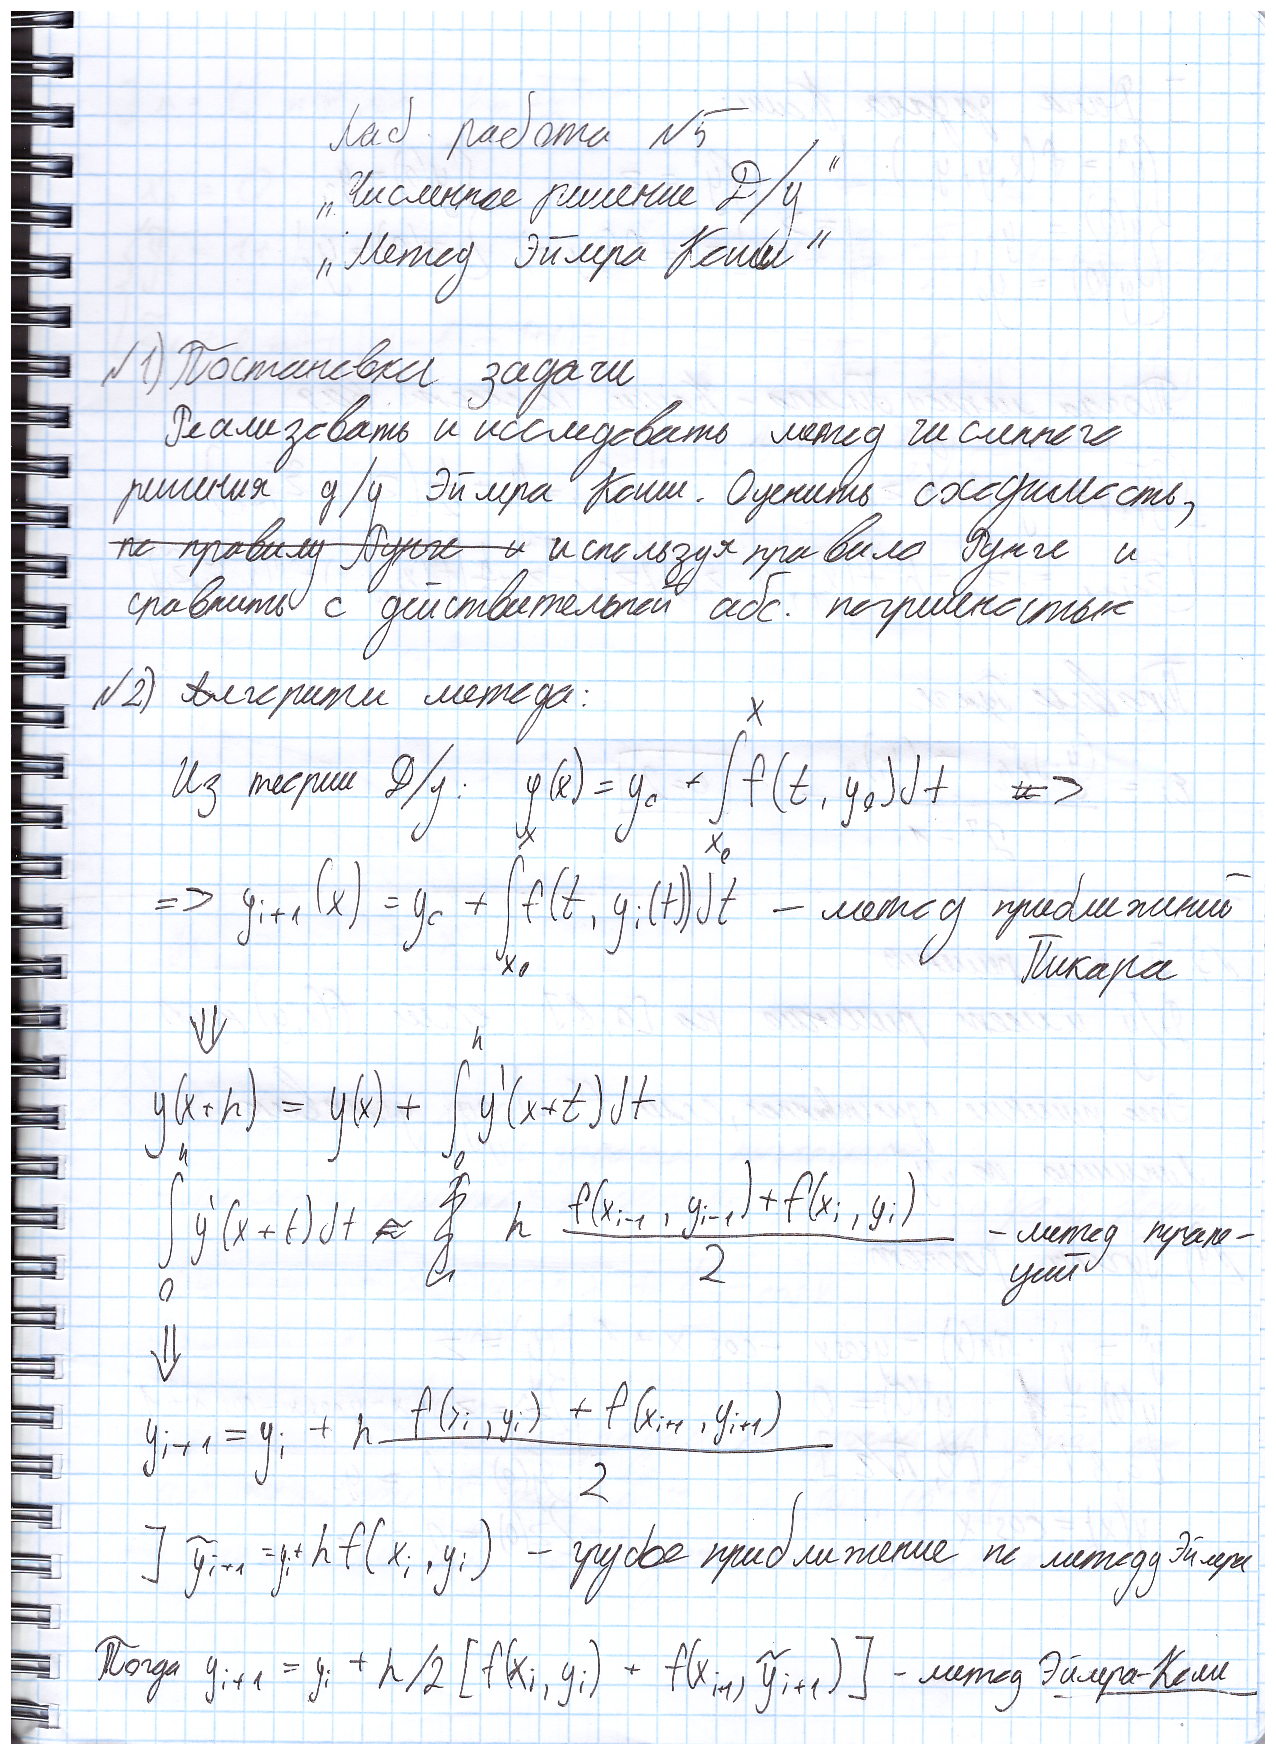 Лаб. работа №5
„Численное решение Д/у"
„Метод Эйлера Коши"
№1) Постановка задачи
Реализовать и исследовать метод численного
решения д/у Эйлера Коши. Оценить сходимость,
по правилу Рунге и используя правило Рунге и
сравнить с действительной абс. погрешностью
№2) Алгоритм метода:
Из теории Д/у: y(x) = y₀ + ∫_{x₀}^{x} f(t, y₀)dt =>
=> y_{i+1}(x) = y₀ + ∫_{x₀}^{x} f(t, y_i(t))dt – метод приближений
Пикара
⇓
y(x+h) = y(x) + ∫_0^h y'(x+t)dt
∫_0^h y'(x+t)dt ≈ h (f(x_{i-1}, y_{i-1}) + f(x_i, y_i))/2 – метод трапе-
ций
⇓
y_{i+1} = y_i + h (f(x_i, y_i) + f(x_{i+1}, y_{i+1}))/2
] ỹ_{i+1} = y_i + hf(x_i, y_i) – грубое приближение по методу Эйлера
Тогда y_{i+1} = y_i + h/2 [f(x_i, y_i) + f(x_{i+1}, ỹ_{i+1})] – метод Эйлера-Коши